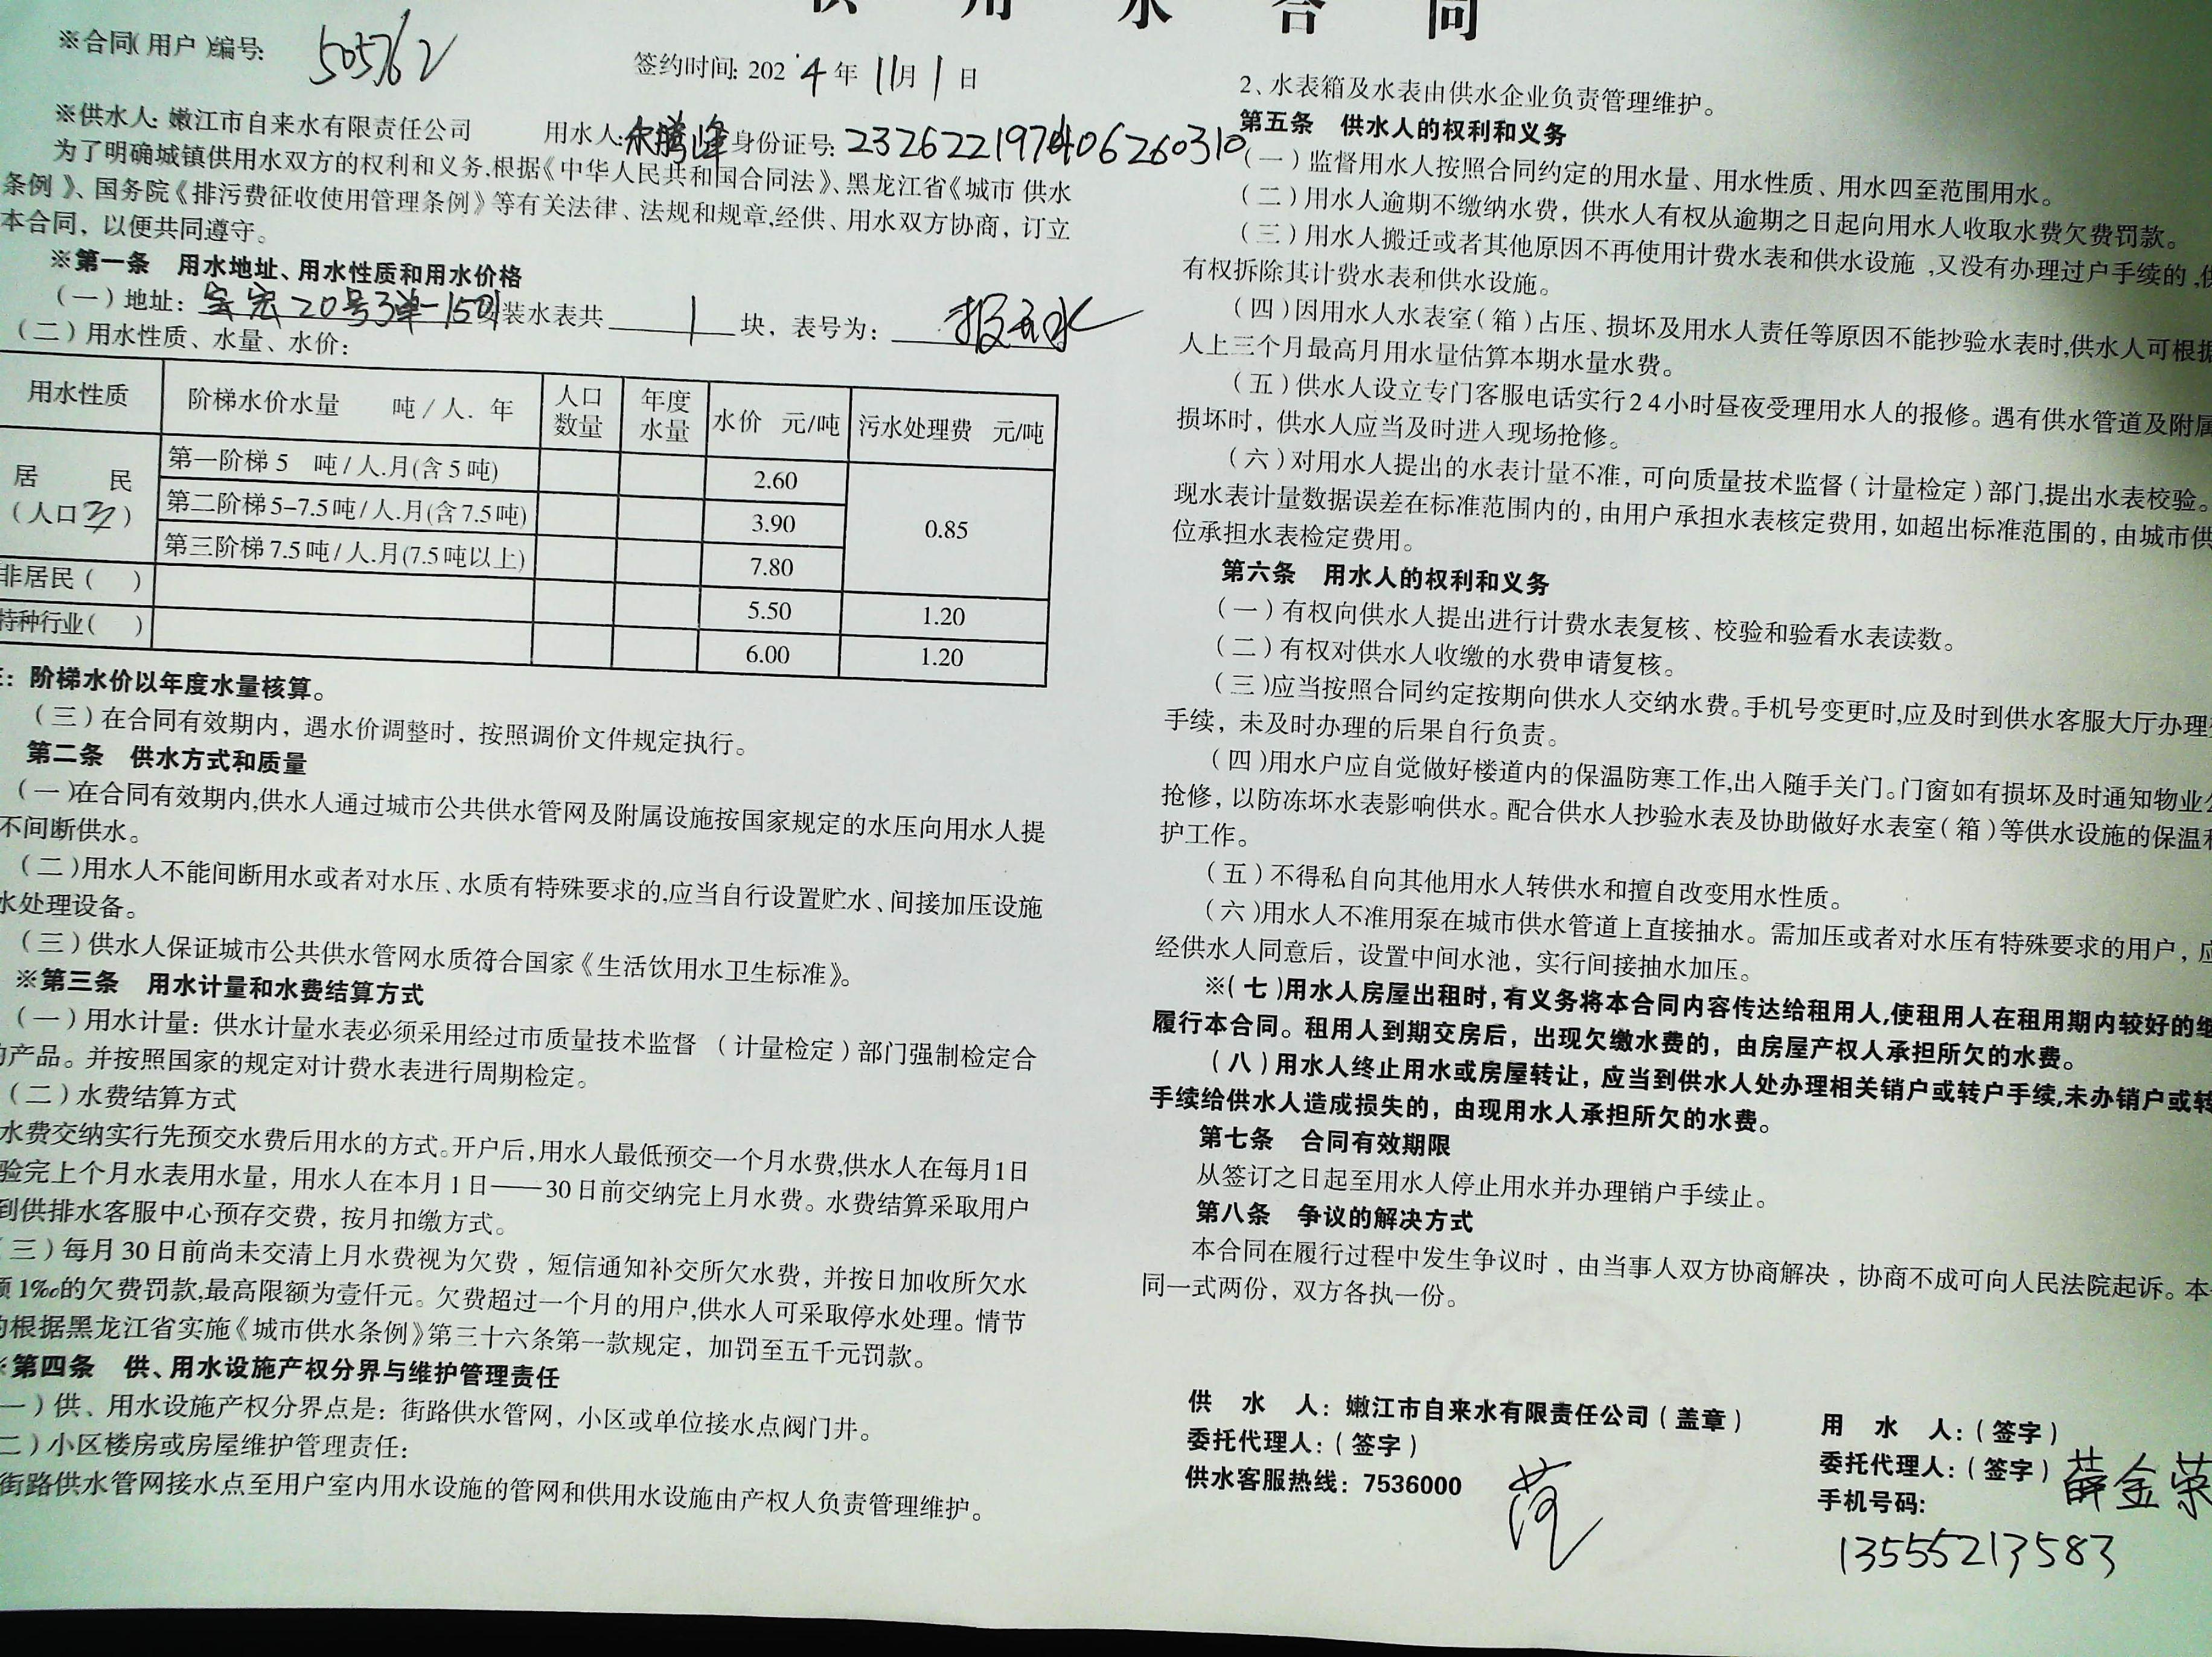 供用水合同
※合同(用户)编号: 505762
签约时间: 2024年11月1日
※供水人: 嫩江市自来水有限责任公司 用水人: 腾峰 身份证号:
为了明确城镇供用水双方的权利和义务,根据《中华人民共和国合同法》、黑龙江省《城市 供水
条例》、国务院《排污费征收使用管理条例》等有关法律、法规和规章,经供、用水双方协商, 订立
本合同, 以便共同遵守。
※第一条 用水地址、用水性质和用水价格
(一)地址: 宏 20号3单-1501 安装水表共 1 块, 表号为: 水
(二)用水性质、水量、水价:
用水性质 阶梯水价水量 吨/人. 年 人口数量 年度水量 水价 元/吨 污水处理费 元/吨
居 民 (人口 3) 第一阶梯5 吨/人.月(含5吨) 2.60 0.85
第二阶梯5-7.5吨/人.月(含7.5吨) 3.90
第三阶梯7.5吨/人.月(7.5吨以上) 7.80
非居民( ) 5.50 1.20
特种行业( ) 6.00 1.20
: 阶梯水价以年度水量核算。
(三)在合同有效期内, 遇水价调整时, 按照调价文件规定执行。
第二条 供水方式和质量
(一)在合同有效期内,供水人通过城市公共供水管网及附属设施按国家规定的水压向用水人提
不间断供水。
(二)用水人不能间断用水或者对水压、水质有特殊要求的,应当自行设置贮水、间接加压设施
水处理设备。
(三)供水人保证城市公共供水管网水质符合国家《生活饮用水卫生标准》。
※第三条 用水计量和水费结算方式
(一)用水计量: 供水计量水表必须采用经过市质量技术监督 (计量检定)部门强制检定合
的产品。并按照国家的规定对计费水表进行周期检定。
(二)水费结算方式
水费交纳实行先预交水费后用水的方式。开户后,用水人最低预交一个月水费,供水人在每月1日
验完上个月水表用水量, 用水人在本月1日——30日前交纳完上月水费。水费结算采取用户
到供排水客服中心预存交费, 按月扣缴方式。
(三)每月30日前尚未交清上月水费视为欠费, 短信通知补交所欠水费, 并按日加收所欠水
额1‰的欠费罚款,最高限额为壹仟元。欠费超过一个月的用户,供水人可采取停水处理。情节
的根据黑龙江省实施《城市供水条例》第三十六条第一款规定, 加罚至五千元罚款。
※第四条 供、用水设施产权分界与维护管理责任
(一)供、用水设施产权分界点是: 街路供水管网, 小区或单位接水点阀门井。
(二)小区楼房或房屋维护管理责任:
街路供水管网接水点至用户室内用水设施的管网和供用水设施由产权人负责管理维护。
2、水表箱及水表由供水企业负责管理维护。
第五条 供水人的权利和义务
(一)监督用水人按照合同约定的用水量、用水性质、用水四至范围用水。
(二)用水人逾期不缴纳水费, 供水人有权从逾期之日起向用水人收取水费欠费罚款。
(三)用水人搬迁或者其他原因不再使用计费水表和供水设施,又没有办理过户手续的,供
有权拆除其计费水表和供水设施。
(四)因用水人水表室(箱)占压、损坏及用水人责任等原因不能抄验水表时,供水人可根据
人上三个月最高月用水量估算本期水量水费。
(五)供水人设立专门客服电话实行24小时昼夜受理用水人的报修。遇有供水管道及附属
损坏时, 供水人应当及时进入现场抢修。
(六)对用水人提出的水表计量不准, 可向质量技术监督(计量检定)部门,提出水表校验。
现水表计量数据误差在标准范围内的, 由用户承担水表核定费用, 如超出标准范围的, 由城市供
位承担水表检定费用。
第六条 用水人的权利和义务
(一)有权向供水人提出进行计费水表复核、校验和验看水表读数。
(二)有权对供水人收缴的水费申请复核。
(三)应当按照合同约定按期向供水人交纳水费。手机号变更时,应及时到供水客服大厅办理
手续, 未及时办理的后果自行负责。
(四)用水户应自觉做好楼道内的保温防寒工作,出入随手关门。门窗如有损坏及时通知物业公
抢修, 以防冻坏水表影响供水。配合供水人抄验水表及协助做好水表室(箱)等供水设施的保温和
护工作。
(五)不得私自向其他用水人转供水和擅自改变用水性质。
(六)用水人不准用泵在城市供水管道上直接抽水。需加压或者对水压有特殊要求的用户, 应
经供水人同意后, 设置中间水池, 实行间接抽水加压。
※(七)用水人房屋出租时,有义务将本合同内容传达给租用人,使租用人在租用期内较好的继
履行本合同。租用人到期交房后, 出现欠缴水费的, 由房屋产权人承担所欠的水费。
(八)用水人终止用水或房屋转让, 应当到供水人处办理相关销户或转户手续,未办销户或转
手续给供水人造成损失的, 由现用水人承担所欠的水费。
第七条 合同有效期限
从签订之日起至用水人停止用水并办理销户手续止。
第八条 争议的解决方式
本合同在履行过程中发生争议时, 由当事人双方协商解决, 协商不成可向人民法院起诉。本
同一式两份, 双方各执一份。
供 水 人: 嫩江市自来水有限责任公司(盖章)
委托代理人:(签字)
供水客服热线: 7536000
用 水 人:(签字)
委托代理人:(签字) 薛金荣
手机号码:
13555213583